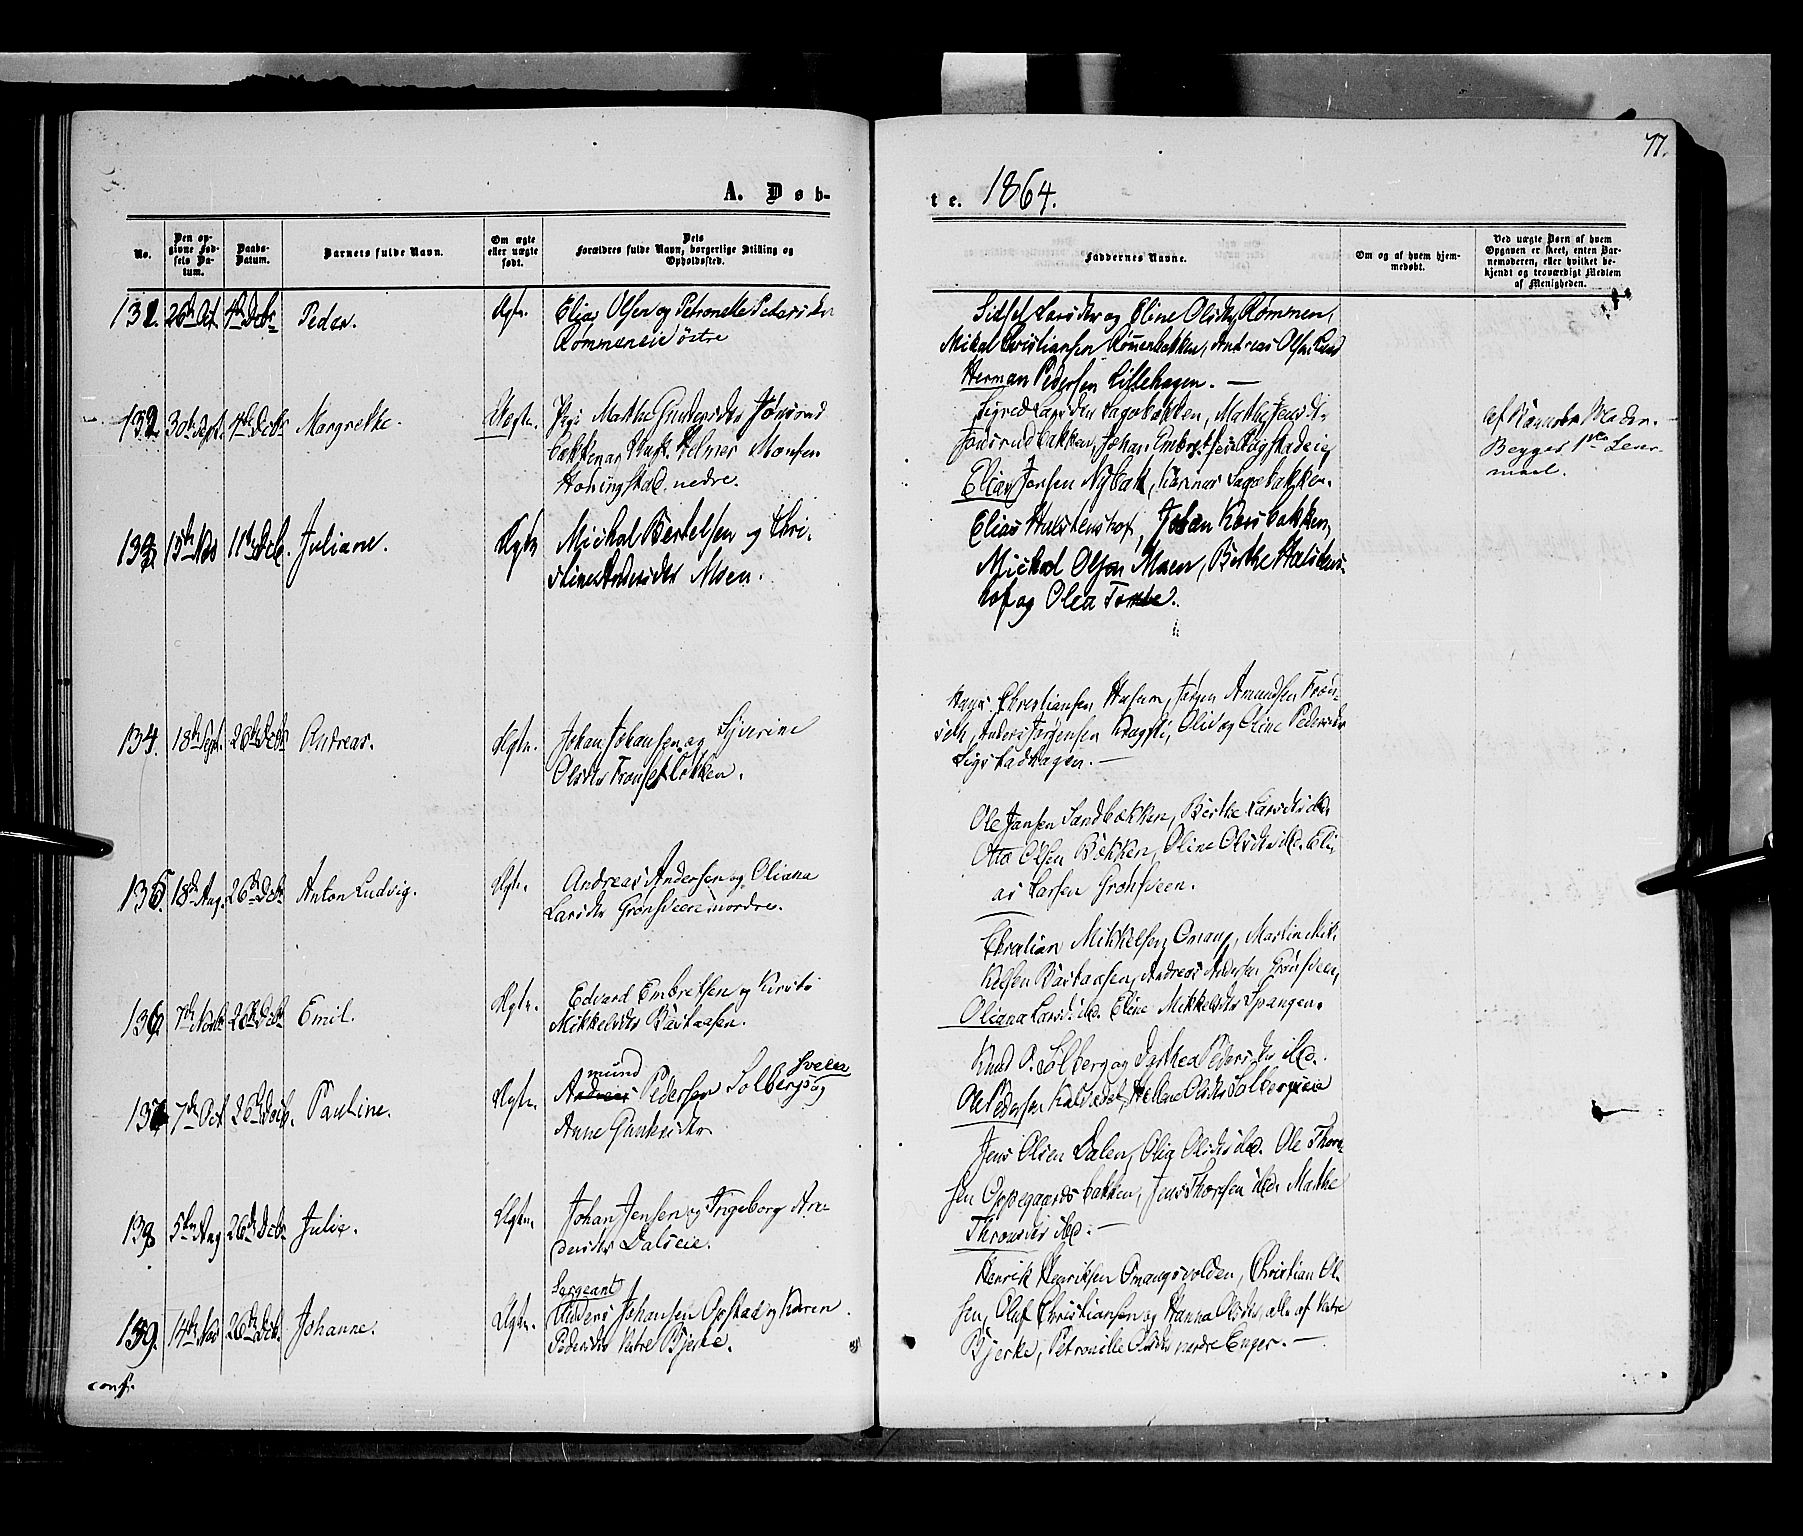 77.
A. Døb-
te. 1864.
No.
Den op-
givne Fød-
sels Da-
tum.
Daabs-
Datum.
Barnets fulde Navn.
Om ægte
eller uægte
født.
Dets
Forældres fulde Navn, borgerlige Stilling og
Opholdssted.
Faddernes Navne.
Om og af hvem hjem-
medøbt.
Ved uægte Børn af hvem
Opgaven er skeet, enten Bar-
nemoderen, eller hvilket be-
kjendt og troværdigt Medlem
af Menigheden.
131. 26de Oct. 4de Decbr Peder. Ægte. Elias Olsen og Petronelle Pedersdtr
Rømmeneie østre
Larsdtr og Eline Olsdtr Rømmen,
Mikal Christiansen Andreas Olsen Lund
Herman Pedersen Lillehagen. —
132 30te Sept. 4de Decbr Margrethe. Uægte. Pige Mathe Gundersdtr Jønsrud
bakken og Helmer Monsen
Honingstad nedre.
Sigred Larsdtr Sagebakken, Mathe Jensdtr
Jønsrudbakken, Johan Embretsen
Elias Jensen Nybak, Sagebakken.
Af Moderen.
Begges 1ste Leier-
maal.
133 15de Nov 11te Decb. Juliane. Ægte Mickal Bertelsen og Chri-
stine Andersdtr Moen.
Elias Halstenshof, Johan Korsbakken,
Mickal Olsen Moen, Berthe Halstens-
hof og Olea Tomte.
134. 18de Sept. 26de Decbr Andreas. Ægte. Johan Johansen og Syverine
Olsdtr Fronsetløkken.
Christiansen Husum, Jørgen Amundsen Fron-
seth, Anders Jørgensen Oliv og Oline Pedersdtr
Sigstadhagen. —
135. 18de Aug. 26de Decbr Anton Ludvig. Ægte. Andreas Andersen og Oliana
Larsdtr Grønsveen nordre.
Ole Jansen Sandbækken, Berthe Larsdtr ibd.
Otto Olsen Bækken, Oline Olsdtr ibd. Eli-
as Larsen Grønsveen.
136 7de Novbr 26de Decbr Emil. Ægte. Edvard Embretsen og Kirsti
Mikkelsdtr Baastaasen.
Christian Mikkelsen Omang, Martin Mik-
kelsen Baastaasen, Andreas Andersen Grønsveen,
Oliana Larsd. ibd. Eline Mikkelsdtr Spangen.
137 7de Oct 26de Decb. Pauline. Ægte. mund Sveen
Andreas Pedersen Solberg og
Anne Gundersdtr
Knud P. Solberg og Dorthea Pedersdtr ibd.
Ole Pedersen Helene Olsdtr Solbergseie
138 5te Aug 26de Decbr Julie. Ægte. Johan Jensen og Ingeborg Arn
Dalseie.
Jens Olsen Dalen, Olia Olsdtr ibd. Ole Thor-
sen Oppegaardsbakken, Jens Thorsen ibd. Mathe
ibd. —
139. 14de Nov 26de Decb. Johanne. Ægte. Sergeant
Anders Johansen Opstad og Karen
Pedersdtr Vestre Bjerke.
Henrik Henriksen Omangsvolden, Christian Ol-
sen, Oluf Christiansen og Hanna Olsdtr, alle af Vestre
Bjerke, Petronille Olsdtr nordre Enger. —
conf.